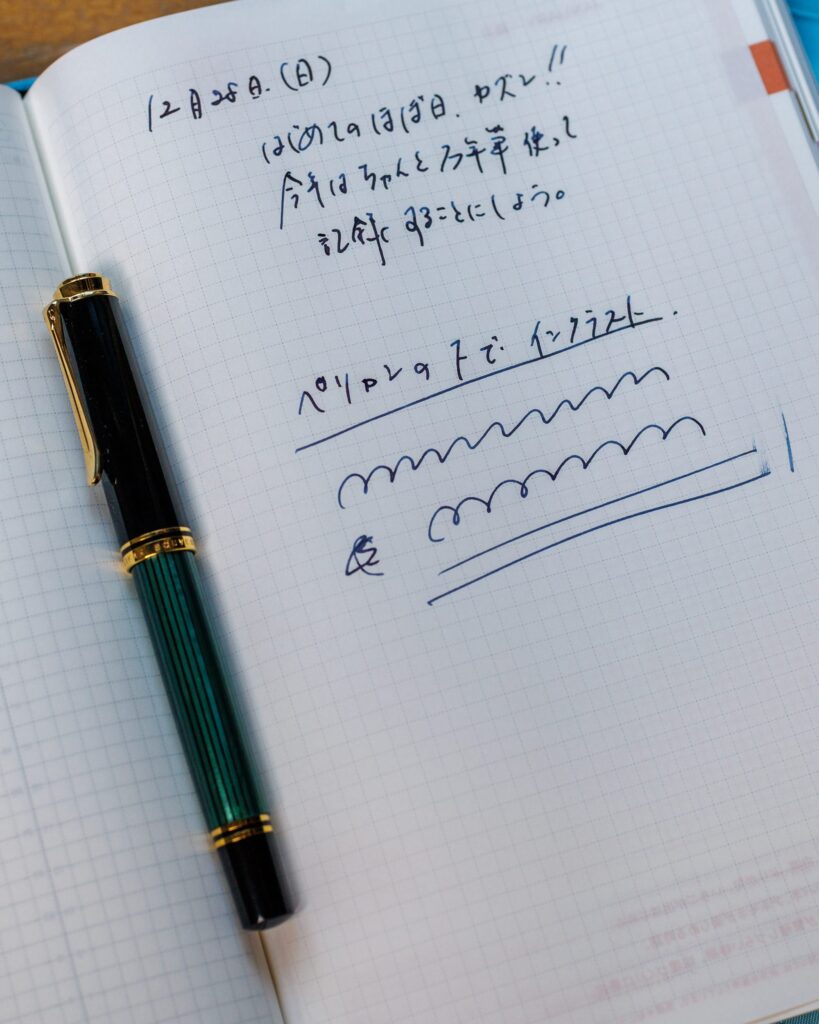 12月28日.(日)
はじめてのほぼ日.カズン!!
今年はちゃんと万年筆使って
記録することにしよう。
ペリカンのFで インクテスト.